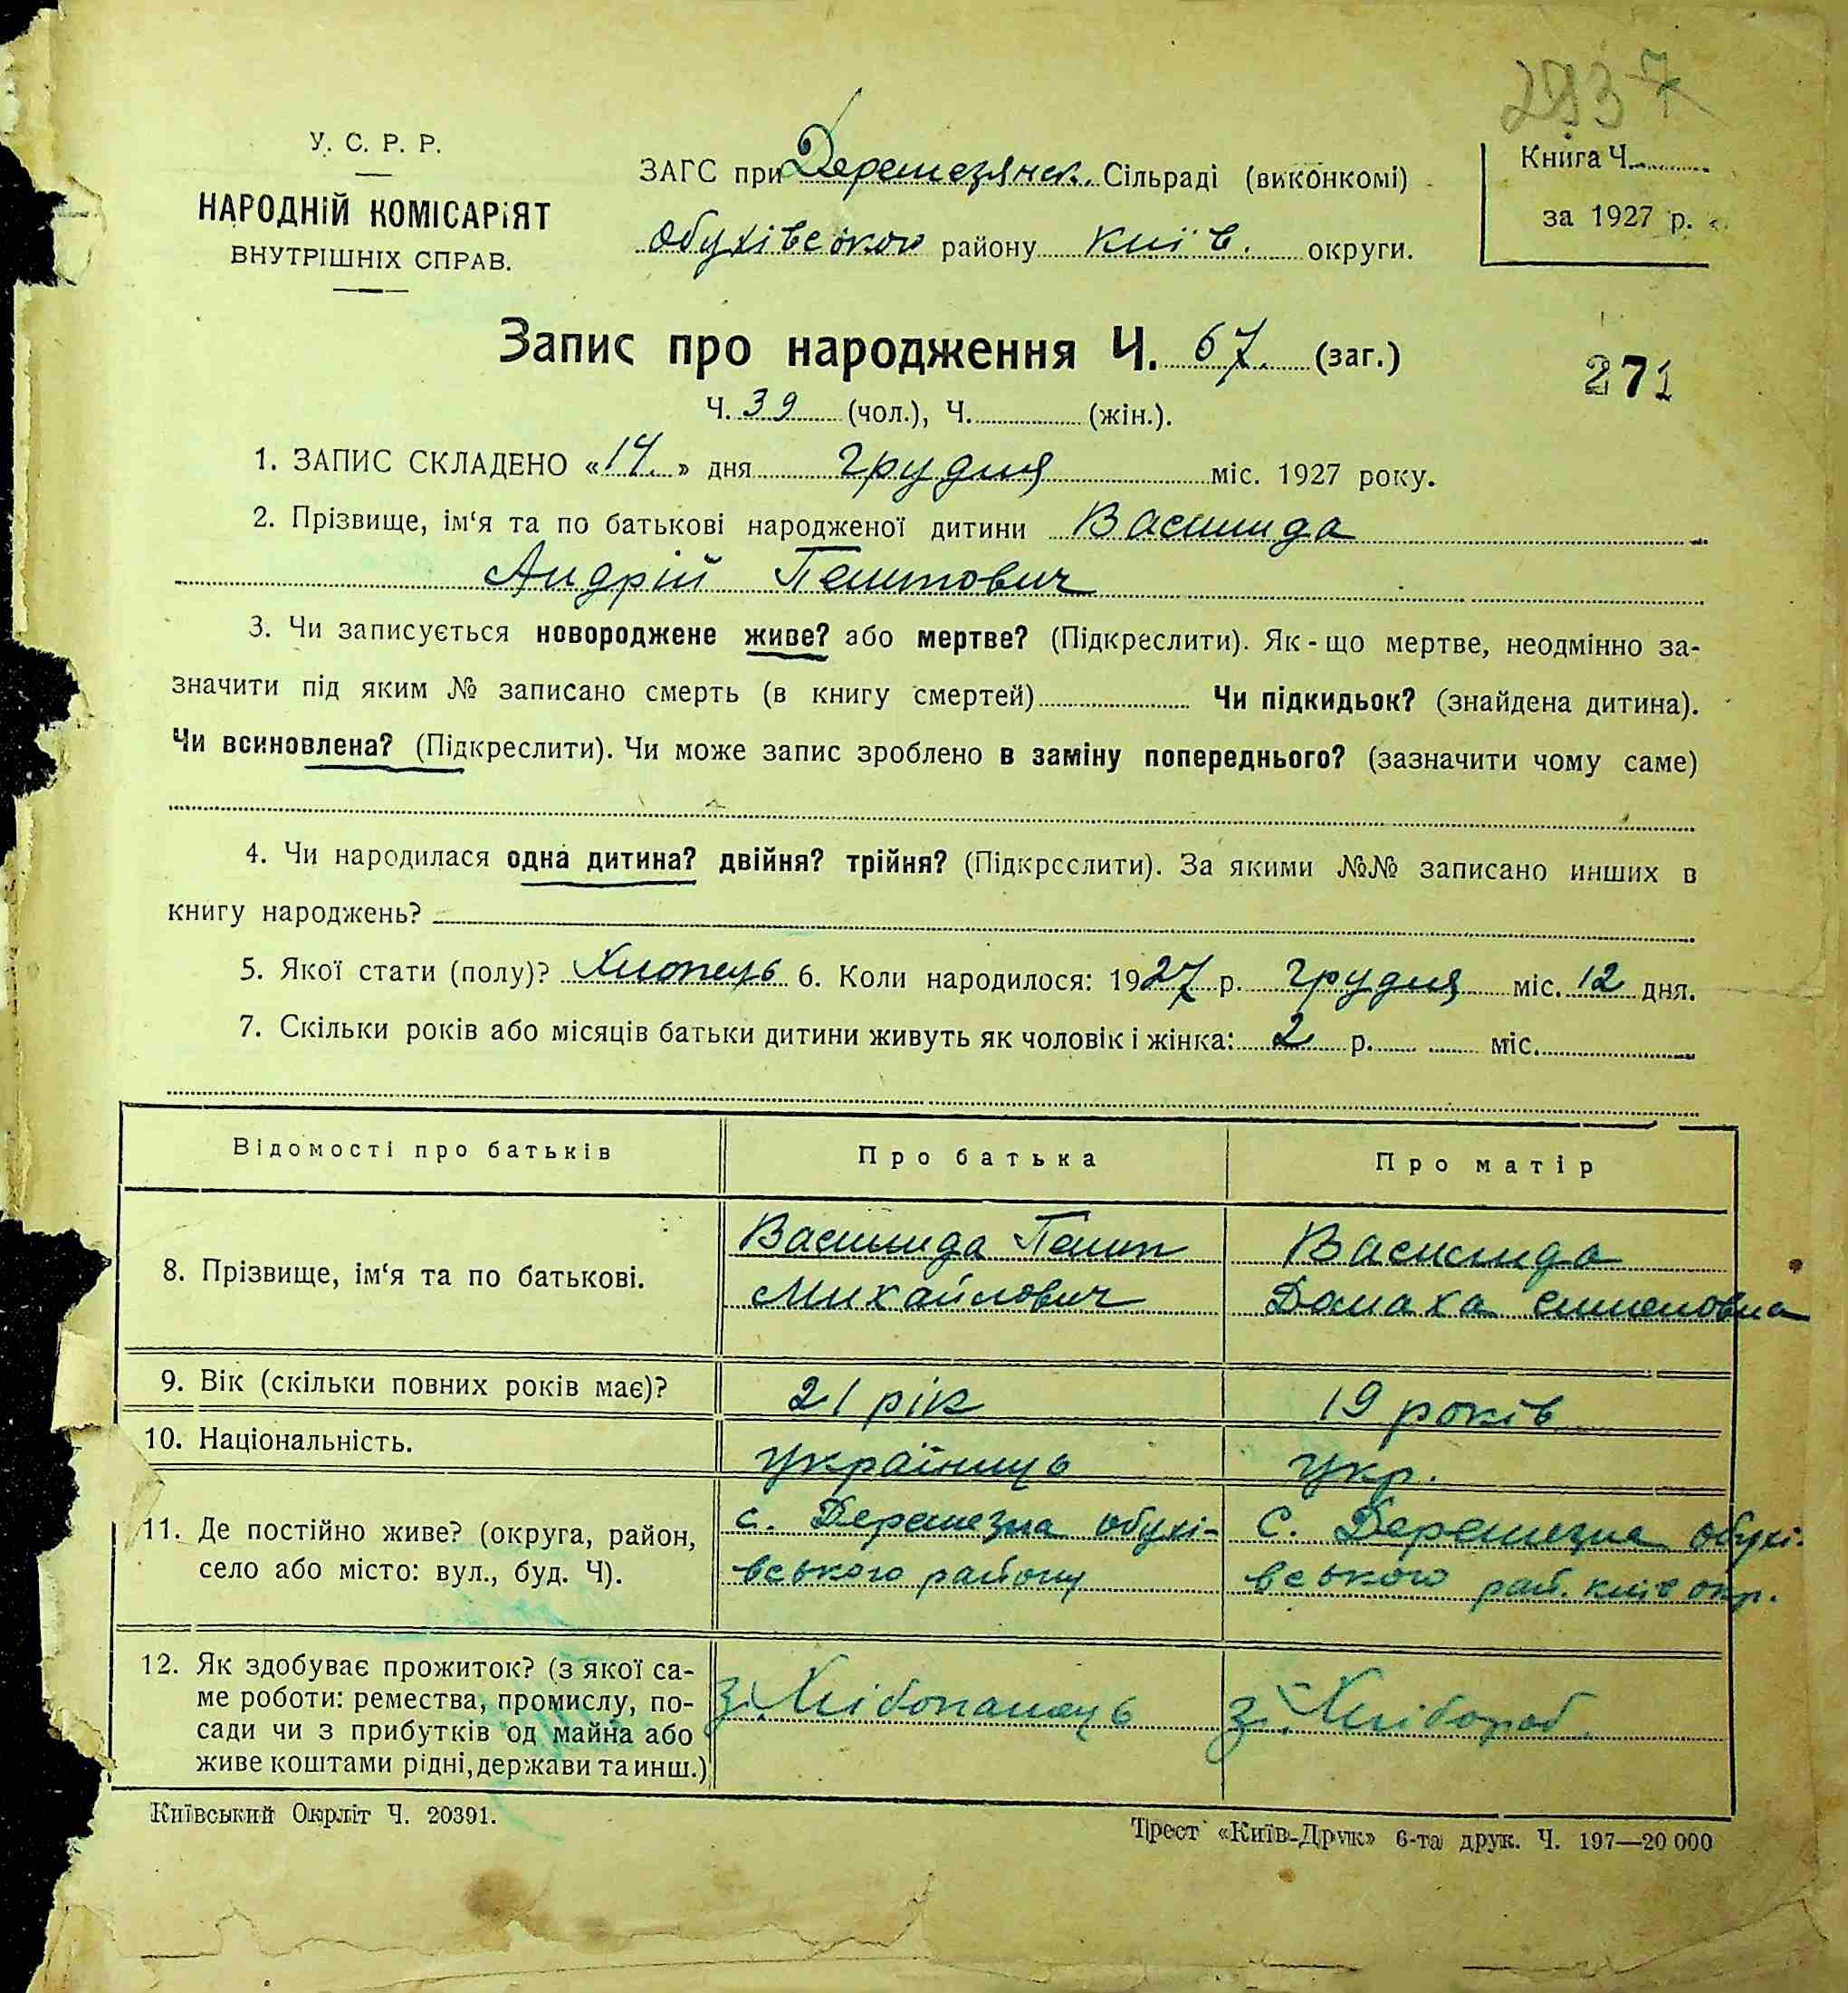 2937
У. С. Р. Р.
НАРОДНІЙ КОМІСАРІЯТ
ВНУТРІШНІХ СПРАВ.
ЗАГС при Деремезянск. Сільраді (виконкомі)
Обухівською району Київ. округи.
Книга Ч.
за 1927 р.
Запис про народження Ч. 67. (заг.)
271
Ч. 39 (чол.), Ч. (жін.).
1. ЗАПИС СКЛАДЕНО «14.» дня грудня міс. 1927 року.
2. Прізвище, ім‘я та по батькові народженої дитини Васишда
Андрій Пештович
3. Чи записується новороджене живе? або мертве? (Підкреслити). Як-що мертве, неодмінно за-
значити під яким № записано смерть (в книгу смертей) Чи підкидьок? (знайдена дитина).
Чи всиновлена? (Підкреслити). Чи може запис зроблено в заміну попереднього? (зазначити чому саме)
4. Чи народилася одна дитина? двійня? трійня? (Підкреслити). За якими №№ записано инших в
книгу народжень?
5. Якої стати (полу)? Хлопець 6. Коли народилося: 1927 р. грудня міс. 12 дня.
7. Скільки років або місяців батьки дитини живуть як чоловік і жінка: 2 р. міс.
Відомості про батьків Про батька Про матір
8. Прізвище, ім‘я та по батькові.
Васишда
Михайлович
Васишда
Домаха
9. Вік (скільки повних років має)? 21 рік 19 років
10. Національність. україниць укр.
11. Де постійно живе? (округа, район,
село або місто: вул., буд. Ч).
с. Деремезна обухі-
вського району
С. Деремезна обухі-
вського рай. київ окр.
12. Як здобуває прожиток? (з якої са-
ме роботи: ремества, промислу, по-
сади чи з прибутків од майна або
живе коштами рідні, держави та инш.)
зі. Хлібопашець
зі. Хлібороб.
Київський Окрліт Ч. 20391.
Трест «Київ-Друк» 6-та друк. Ч. 197—20 000